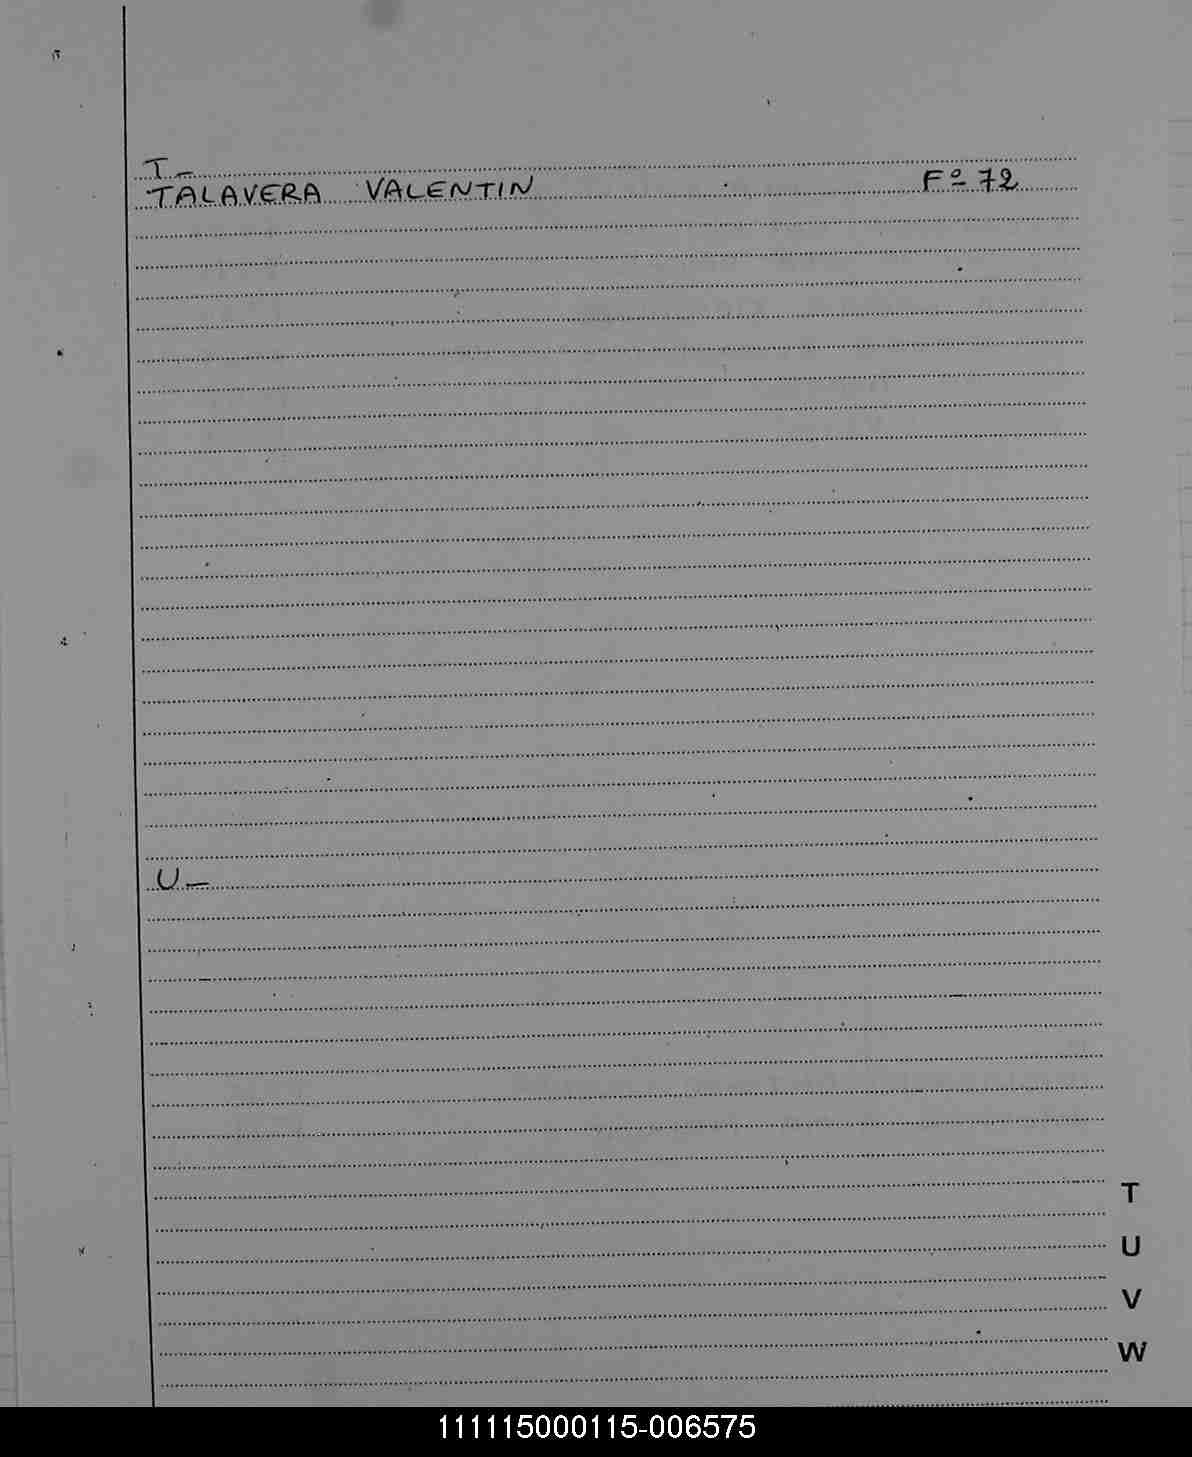 T-
TALAVERA VALENTIN Fº 72
U-
T
U
V
W
111115000115-006575